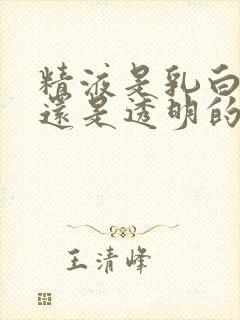 精液是乳白
還是透明的
王清峰